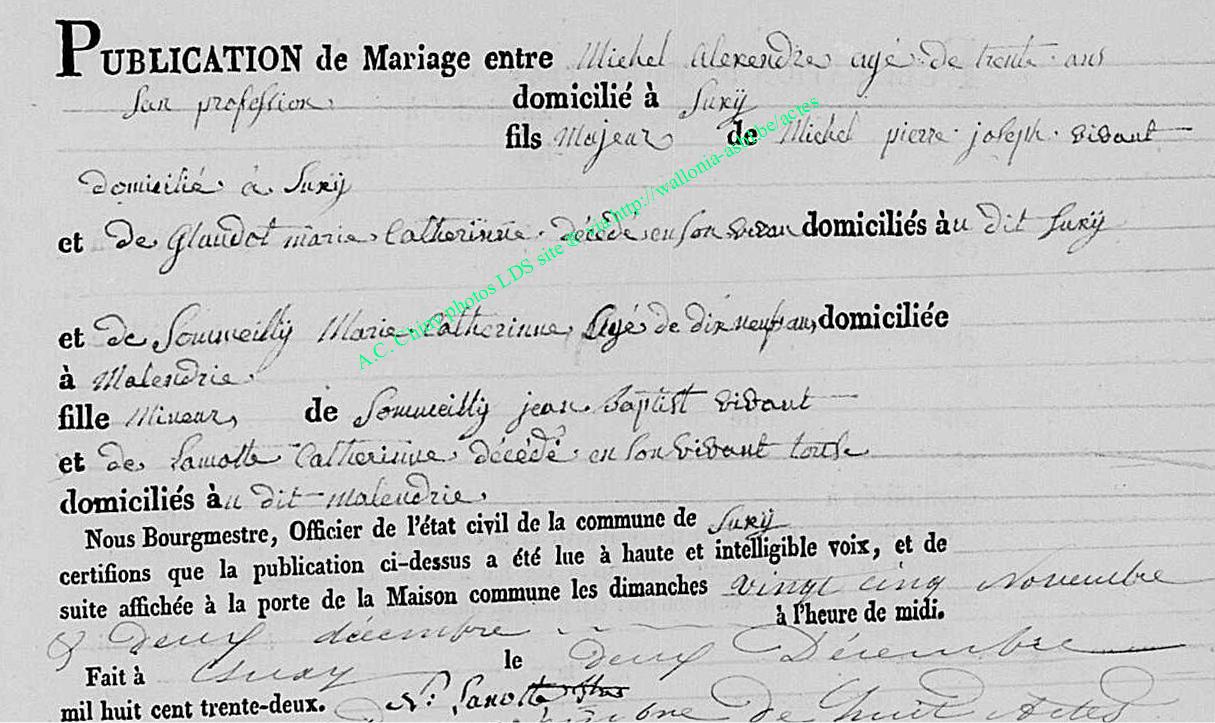 PUBLICATION de Mariage entre Michel Alexendre agé de trente ans
san profession domicilié à Suxÿ
fils Majeur de Michel pierre joseph vivant
domicilié à Suxÿ
et de Glaudot marie Catherinne décédé en son vivan domiciliés àu dit Suxÿ
et de Sommeillÿ Marie Catherinne Agé de dix neuf an domiciliée
à Malendrie
fille Mineur de Sommeillÿ jean Baptist vivant
et de Lamotte Catherinne décédé en son vivant
domiciliés àu dit Malendrie
Nous Bourgmestre, Officier de l'état civil de la commune de Suxÿ
certifions que la publication ci-dessus a été lue à haute et intelligible voix, et de
suite affichée à la porte de la Maison commune les dimanches vingt cinq Novembre
& Deux décembre à l'heure de midi.
Fait à le Deux Décembre
mil huit cent trente-deux.
de huit Actes
A.C. Chiny photos LDS site http://wallonia-asbl.be/actes